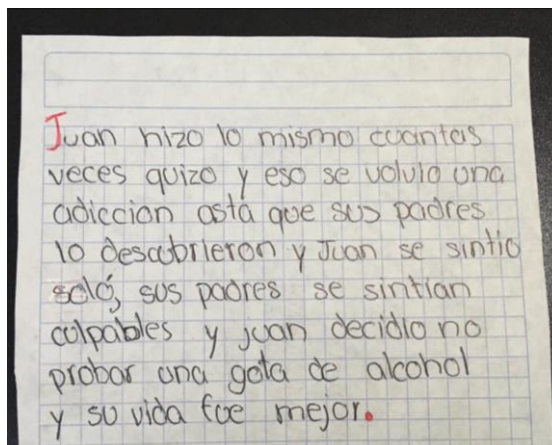 Juan hizo lo mismo cuantas
veces quizo y eso se volvio una
adiccion asta que sus padres
lo descubrieron y Juan se sintio
soló, sus padres se sintian
culpables y juan decidio no
probar una gota de alcohol
y su vida fue mejor.